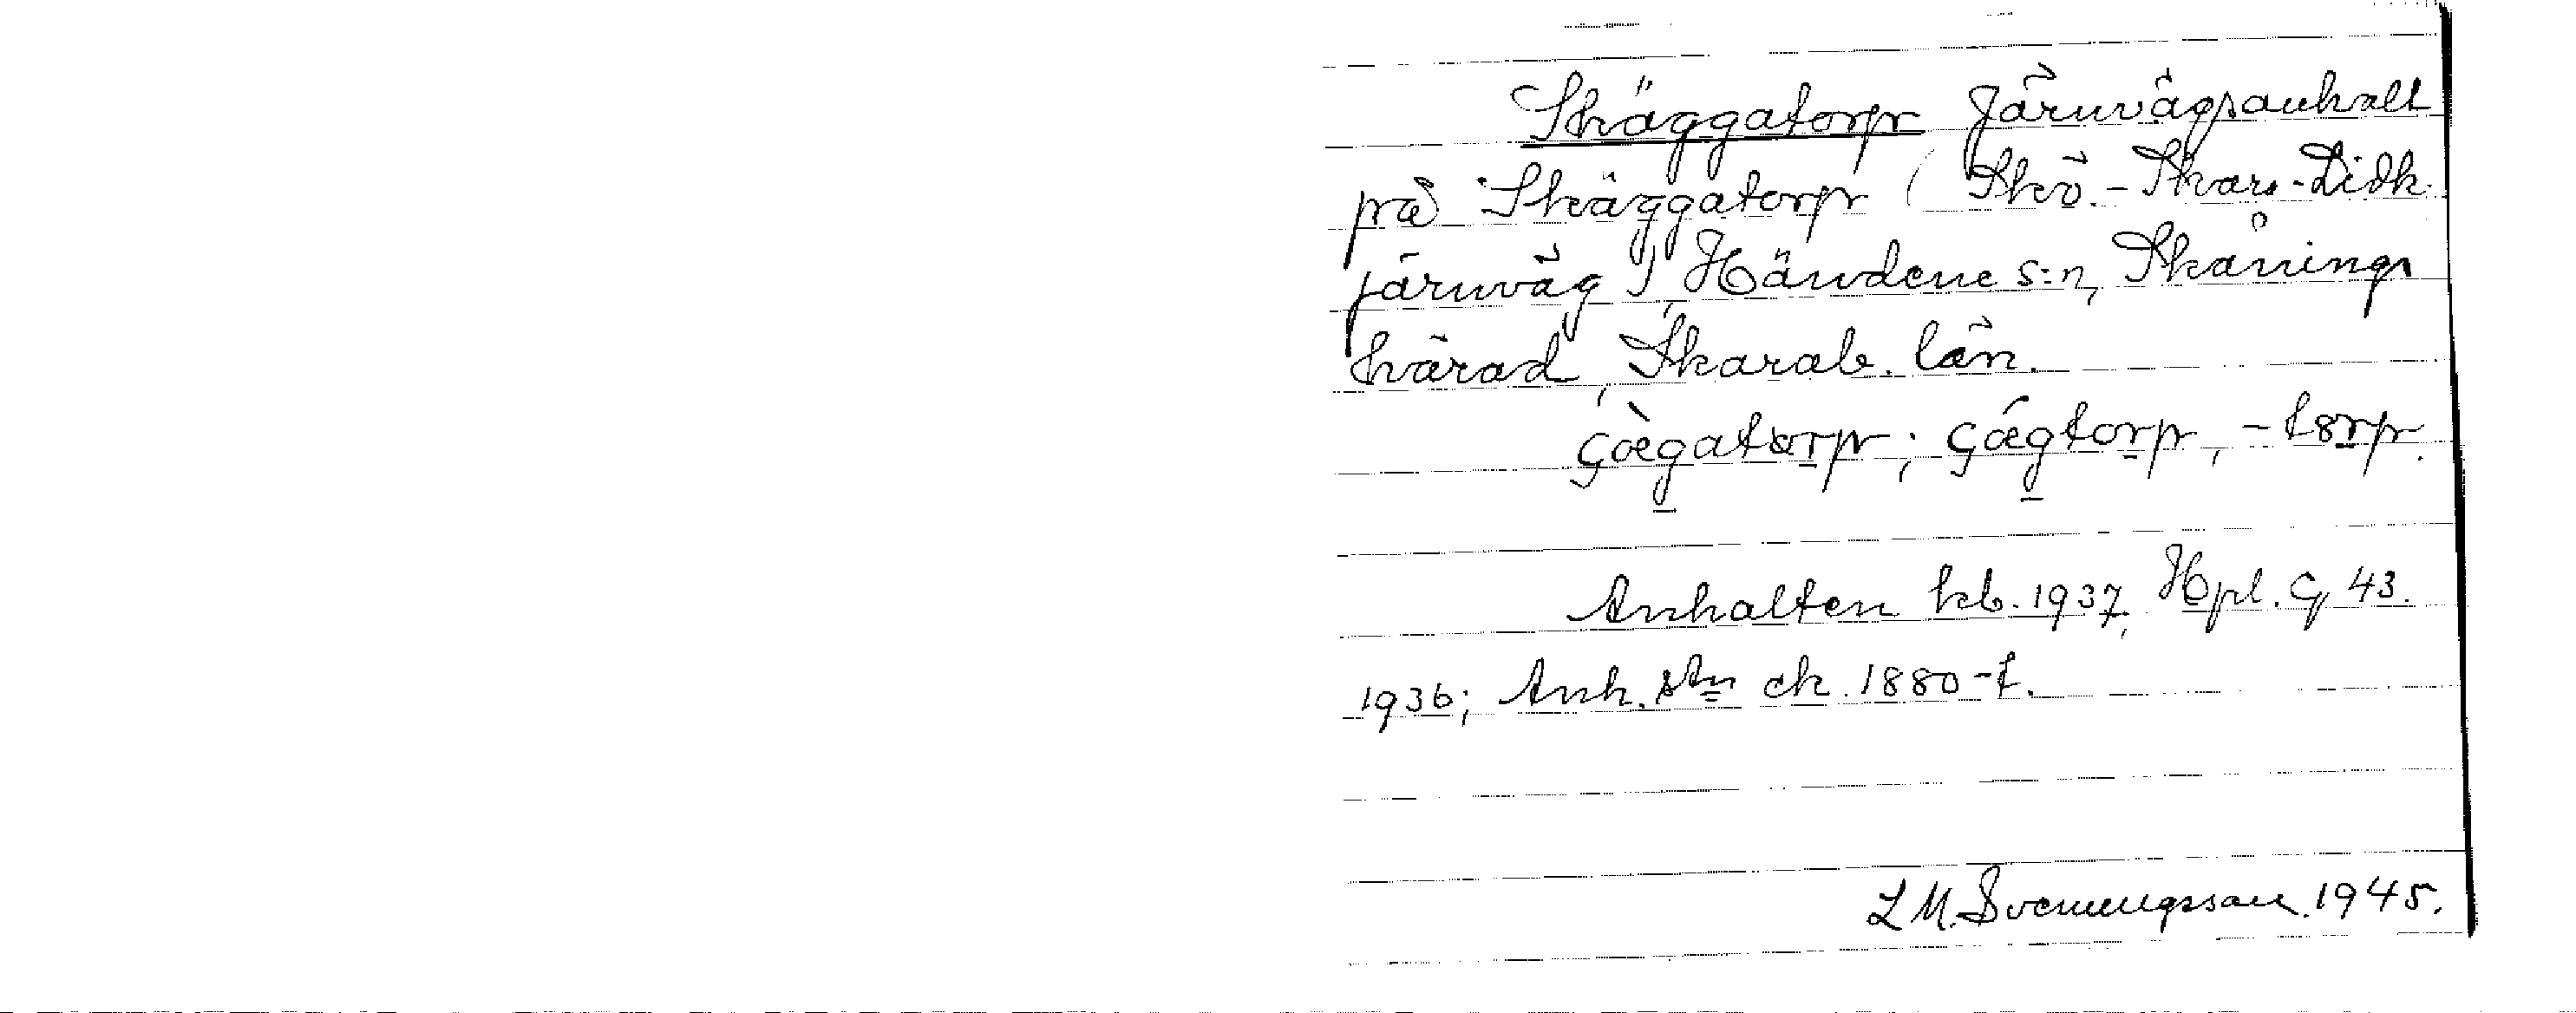 Skäggatorp Järnvägsanhalt
på Skäggatorp (Skö.-Skara-Lidk.
järnväg), Händene s:n, Skånings
härad, Skarab. län.
çæ̀gatorp; çǽgtorp, -torp.
Anhalten kb. 1937, Hpl. G 43.
1936; Anh. stn ek. 1880-t.
L M. Svenungsson. 1945.